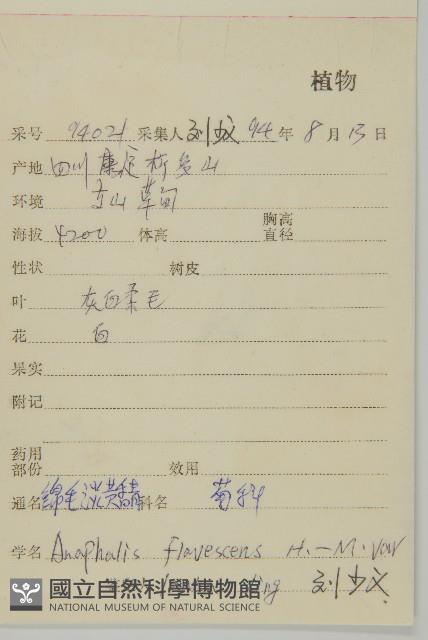 植物
采号 94021 采集人 刘 94年 8月 13日
产地 四川康定折多山
环境 高山草甸
海拔 4200 体高 胸高直径
性状 树皮
叶 灰白柔毛
花 白
果实
附记
药用部份 效用
通名 绵毛淡黄香青 科名 菊科
学名 Anaphalis flavescens H.-M. var
ling 刘
國立自然科學博物館
NATIONAL MUSEUM OF NATURAL SCIENCE